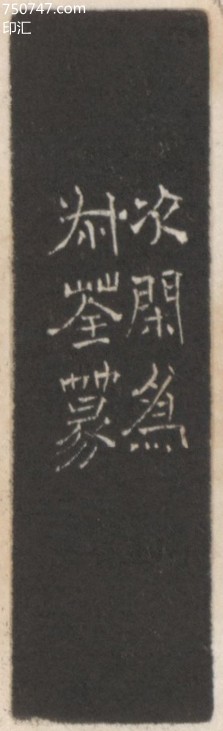 750747.com
印汇
次閑為
叔荃篆